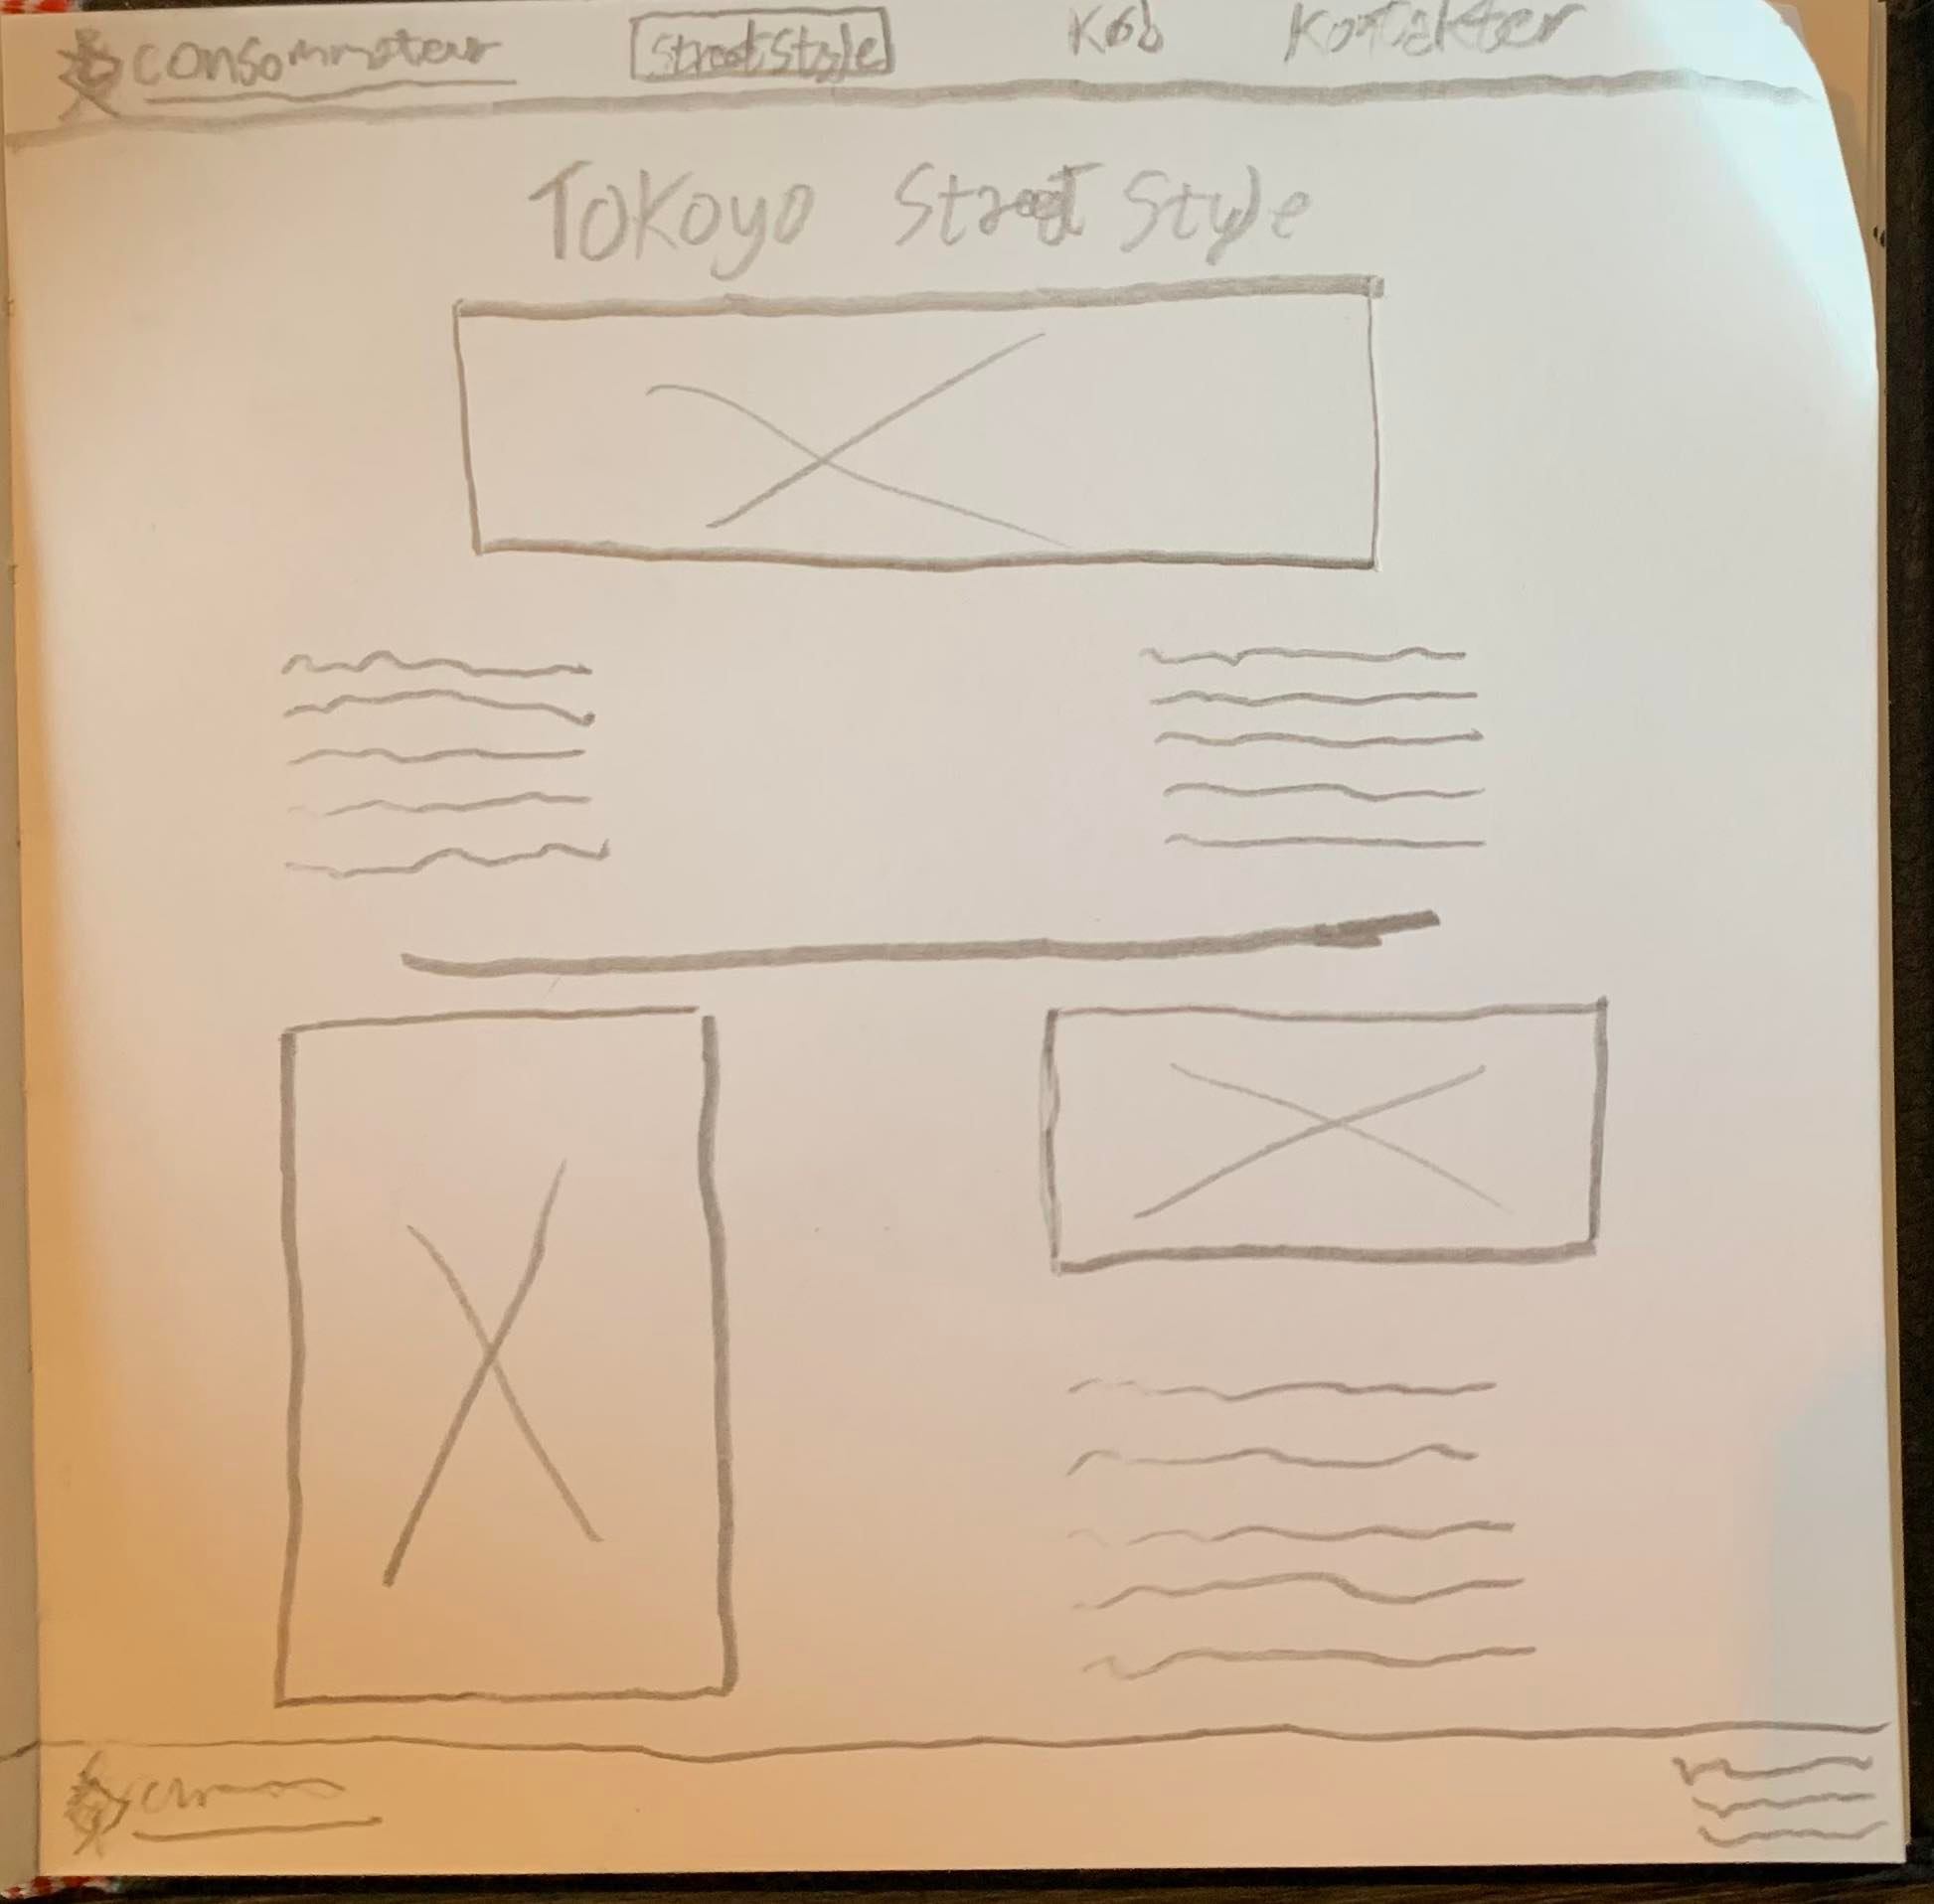 consommateur StreetStyle Köb Kontakter
Tokoyo Street Style